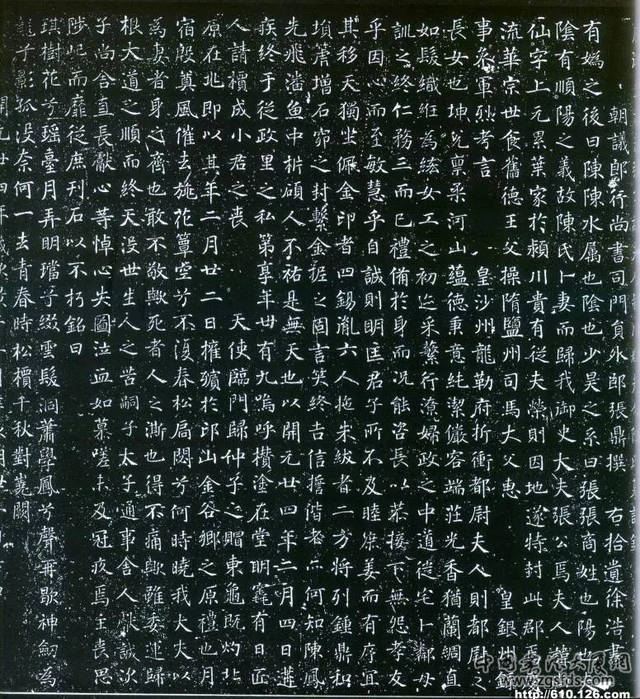 朝議郎行尚書司門員外郎張鼎撰 右拾遺徐浩書
有媯之後曰陳陳水屬也陰也少昊之系曰張張商姓也陽也
陰有順陽之義故陳氏卜妻而歸我御史大夫張公焉夫人諱尚
仙字上元累葉家於潁川貴有從夫榮則因地遂特封此郡
流華宗世食舊德王父操隋鹽州司馬大父惠 皇銀州
事參軍烈考言 皇沙州龍勒府折衝都尉夫人則都尉之
長女也坤元稟柔河山蘊德秉意純潔儀容端莊光香猶蘭綢直
如髮織紝爲絃女工之初迄采蘩行潦婦政之中道從宅卜鄰母
訓之終仁務三而已禮備於身而況能咨長以恭接下無怨孝友
乎因心而至敏慧乎自誠則明匡君子所不及睦眾姜而有序宜
其移天獨坐佩金印者四錫胤六人拖朱紱者二方將列鍾鼎和
塤箎增石窌之封繫金柅之固言笑終吉信擔偕老亦何知陳鳳
先飛潘魚中析碩人不祐是無天也以開元廿四年二月四日遘
疾終于從政里之私第享年卌有九嗚呼攢塗在堂明竁有日面
人請櫝成小君之喪 天使臨門歸仲子之賵東龜既灼北
原在兆即以其年二月廿二日擁殯於邙山金谷鄉之原禮也月
宿殷奠風催去旐花簟空兮不復春松扃閟兮何時曉我大夫以
爲妻者身之齊也敢不敬歟死者人之澌也得不痛歟雖委運歸
根大道之順而終天沒世生人之苦嗣子太子通事舍人獻誠次
子尚舍直長獻心等悼心失圖泣血如慕嗟未及冠疚焉主喪思
陟屺而靡從庶刊石以不朽銘曰
琪樹花兮瑤臺月弄明璫子綴雲髮洞簫學鳳兮聲再歇神劍爲
龍子影孤沒奈何一去青春時松檟千秋對嵩闕
www.zgsfds.com
http://610.126.com